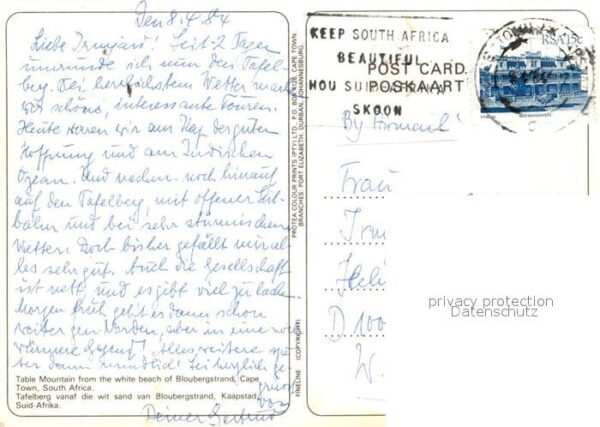 Den 8.4.84
Liebe Irmgard! Seit 2 Tagen
umrunde ich nun den Tafel-
berg. Bei herrlichstem Wetter
wir schöne, interessante Touren.
Heute waren wir am Kap der guten
Hoffnung und am Indischen
Ozean. Und nachm. noch hinauf
auf den Tafelberg, mit offener Seil-
bahn und bei sehr stürmischen
Wetter. Doch bisher gefällt mir al-
les sehr gut. Auch die Gesellschaft
ist nett, und es gibt viel zu lachen.
Morgen früh geht es dann schon
weiter gen Norden, aber in eine
wärmere Gegend! Alles weitere spä-
ter dann mündlich! Sei herzlich ge-
grüsst
von
Deiner Gertrud
Table Mountain from the white beach of Bloubergstrand, Cape
Town, South Africa.
Tafelberg vanaf die wit sand van Bloubergstrand, Kaapstad,
Suid-Afrika.
PROTEA COLOUR PRINTS (PTY) LTD., P.O. BOX CAPE TOWN.
BRANCHES PORT ELIZABETH, DURBAN, JOHANNESBURG.
FINELINE (COPYRIGHT)
KEEP SOUTH AFRICA
BEAUTIFUL
HOU SUID-AFRIKA
SKOON
POST CARD
POSKAART
RSA 15c
By Airmail
Frau
Irm
D 100
W.
privacy protection
Datenschutz